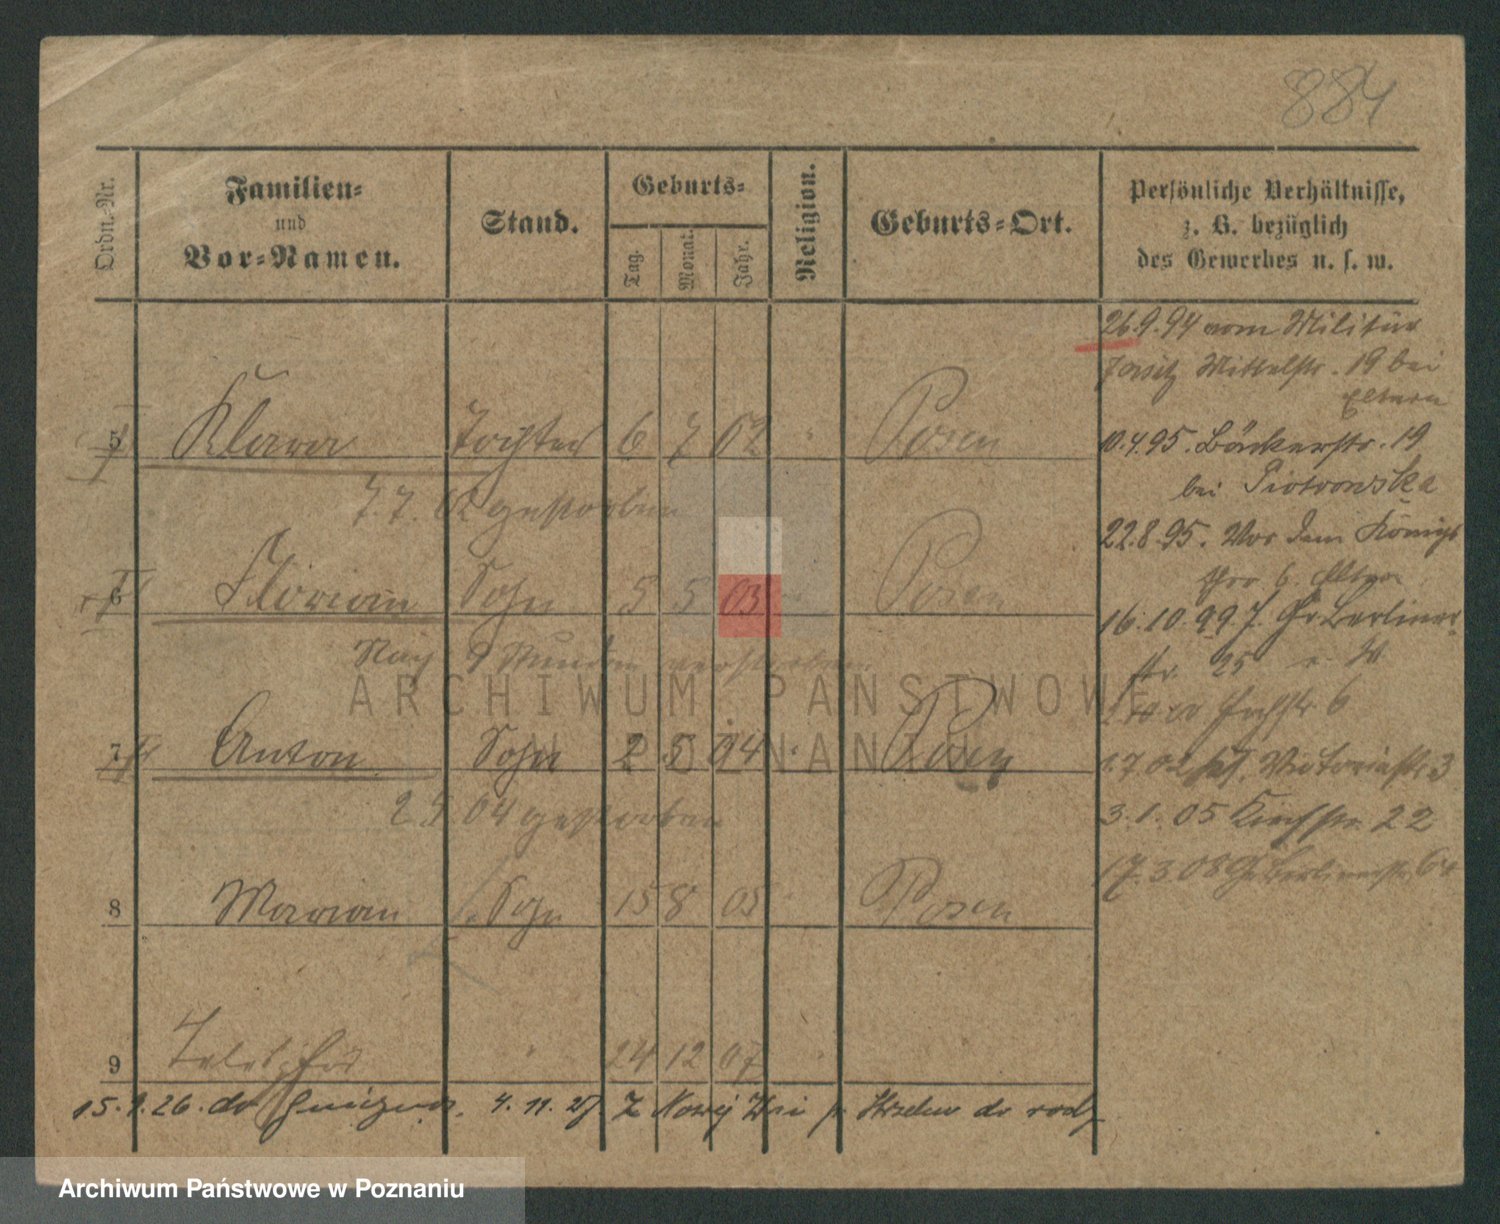 884
Ordn.-Nr.
Familien-
und
Vor-Namen.
Stand.
Geburts-
Tag.
Monat.
Jahr.
Religion.
Geburts-Ort.
Persönliche Verhältnisse,
z. B. bezüglich
des Gewerbes u. s. w.
26.9.94 vom Militär
Jersitz Mittelstr. 19 bei
Eltern
10.4.95. Bäckerstr. 19
bei Piotrowska
22.8.95. Vor dem Königs
thor 6. Eltern
16.10.99 Gr Berliner
str. 25
6
Victoriastr. 3
3.1.05 22
17.3.08 Gr. Berlinerstr. 64
5 Klara Tochter 6 7 02 " Posen
7.7.02 gestorben
6 Florian Sohn 5 5 03 " Posen
Nach 9 Stunden verstorben
7 Anton Sohn 2 5 04 " Posen
2 5 04 gestorben
8 Marian Sohn 15 8 05 " Posen
9 Telesfor " 24 12 07 "
15.1.26. do Gniezna. 4.11.27 Z Nowej Wsi p. Strzelno do rodz
ARCHIWUM PAŃSTWOWE
W POZNANIU
Archiwum Państwowe w Poznaniu